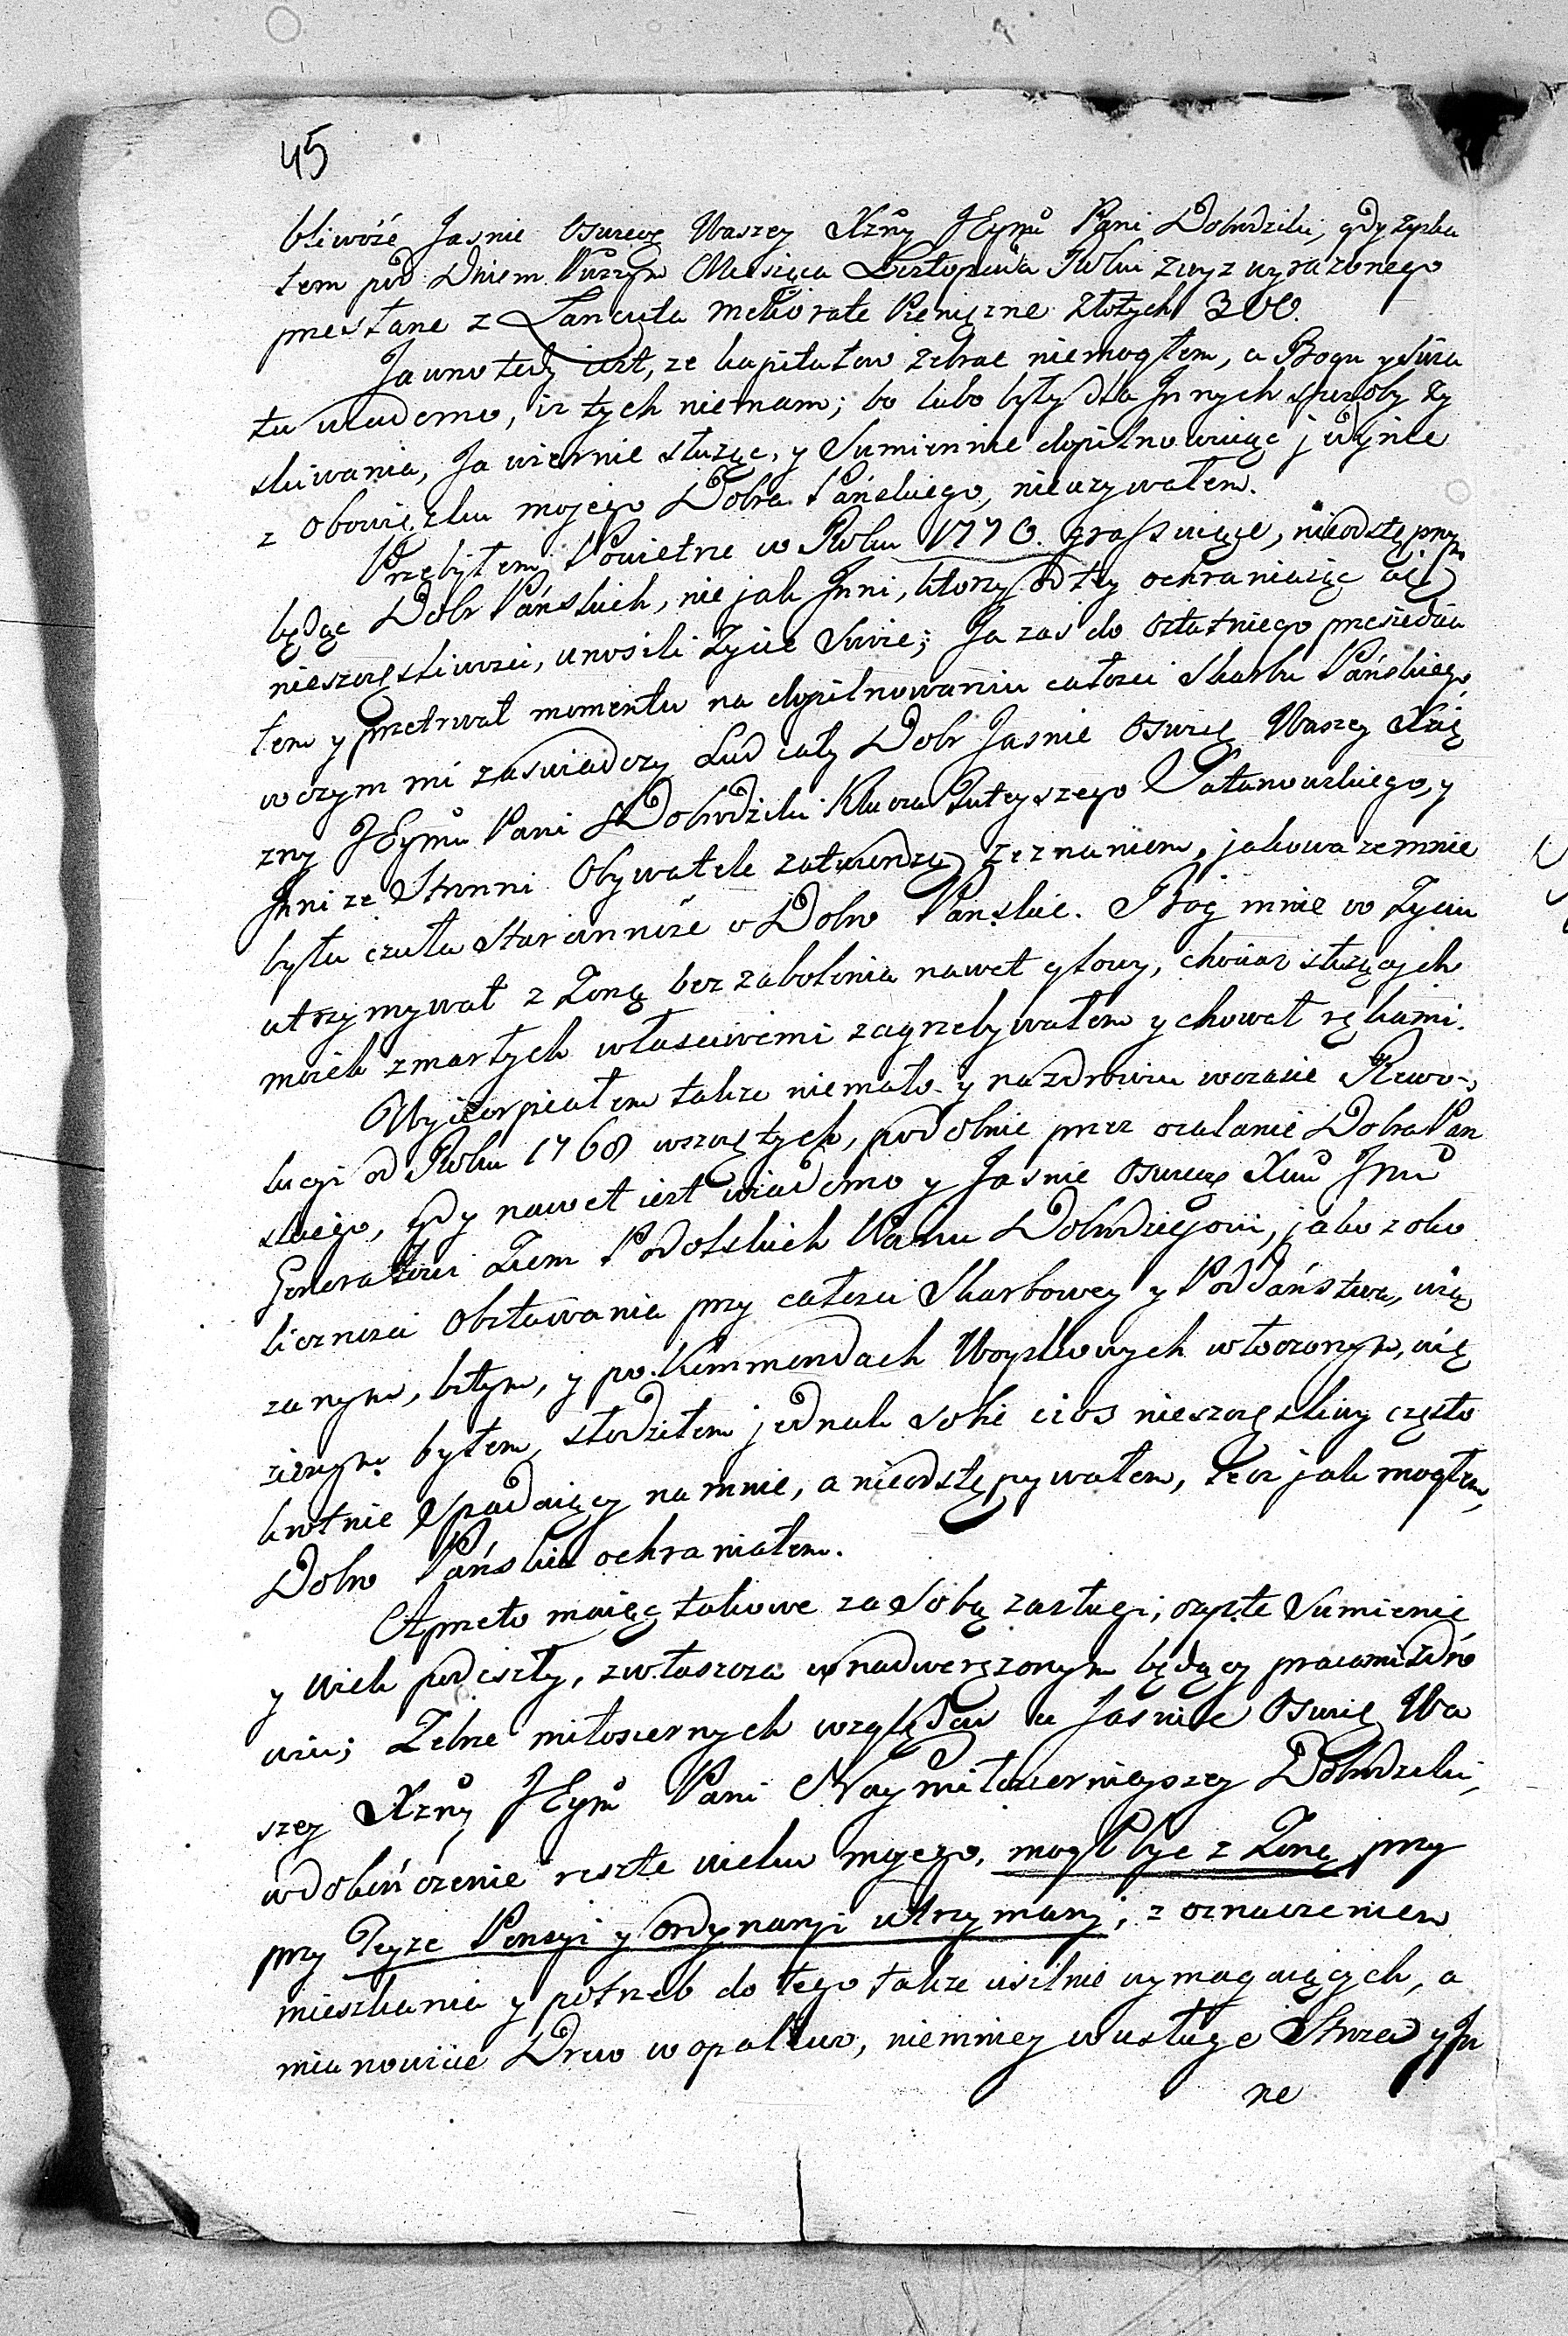 45
bliwość Jasnie Oswieę Waszey Xżny JEymu Pani Dobrodziki, gdy zyska
tem pod Dniem Pirszym Miesiąca Listopada Roku zwyż wyrazonego
przesłane z Łancuta meliorate Pieniężne Złotych 300.
Jawno tedy iest, ze kapitałow zebrac niemogłem, a Bogu y Swia
tu wiadomo, iz tych niemam; bo lubo były dla Innych sposoby Zy
skiwania, Ja wiernie służąc, y Sumiennie dopilnowuiąc jedynie
z obowiązku mojego Dobra Pańskiego, nieuzywałem.
Przebyłem Powietrze w Roku 1770. grassuiące, nieodstępny
będąc Dobr Pańskich, nie jak Inni, ktorzy od tey ochraniaiąc się
nieszczęsliwosci, unosili Zycie Swoie; Ja zas do ostatniego przesiedzia
łem y przetrwał momentu na dopilnowaniu całosci Skarbu Pańskiego,
w czym mi zaswiadczy Lud cały Dobr Jasnie Oswię Waszey Xię
zny JEymu Pani Dobrodziki Klucza Tuteyszego Satanowskiego, y
Inni ze Stronni Obywatele zatwierdzą zeznaniem, jakowa zemnie
była czuła Starannośc o Dobro Panskie. Bog mnie w Zyciu
utrzymywał z Zoną bez zabolenia nawet głowy, chociaz służących
moich zmarłych własciwemi zagrzebywałem y chował rękami.
Wycierpiałem takze niemało y na zdrowiu w czasie Rewo-
lucyi od Roku 1768 wszczętych, podobnie przez ocalanie Dobra Pan
skiego, gdy nawet iest wiadomo y Jasnie Oswieę Xciu Jmu
Generałowi Ziem Podolskich Panu Dobrodziejowi, jako z oko
licznosci obstawania przy całosci Skarbowey y Poddaństwa, wią
zanym, bitym, y po Kommendach Woyskowych włoczonym, wię
zionym byłem, słodziłem jednak sobie cios nieszczęsliwy często
krotnie spadaiący na mnie, a nieodstępywałem, lecz jak mogłem,
Dobro Pańskie ochraniałem.
A przeto maiąc takowe za Sobą zasługi, czyste Sumienie
y wiek podeszły, zwłaszcza w nadwerężonym będący pracami zdro
wiu; Zebrze miłosiernych względow u Jasnie Oswię Wa
szey Xżny JEymu Pani Naymiłosiernieyszey Dobrodziki,
w dokończenie reszte wieku mojego, mogł byc z Zoną przy
przy Teyze Pensyi y Ordynaryi utrzymany; z oznaczeniem
mieszkania y potrzeb do tego takze usilnie wymagaiących, a
mianowicie Drew w opałku, niemniey w usługe Stroza y In
ne